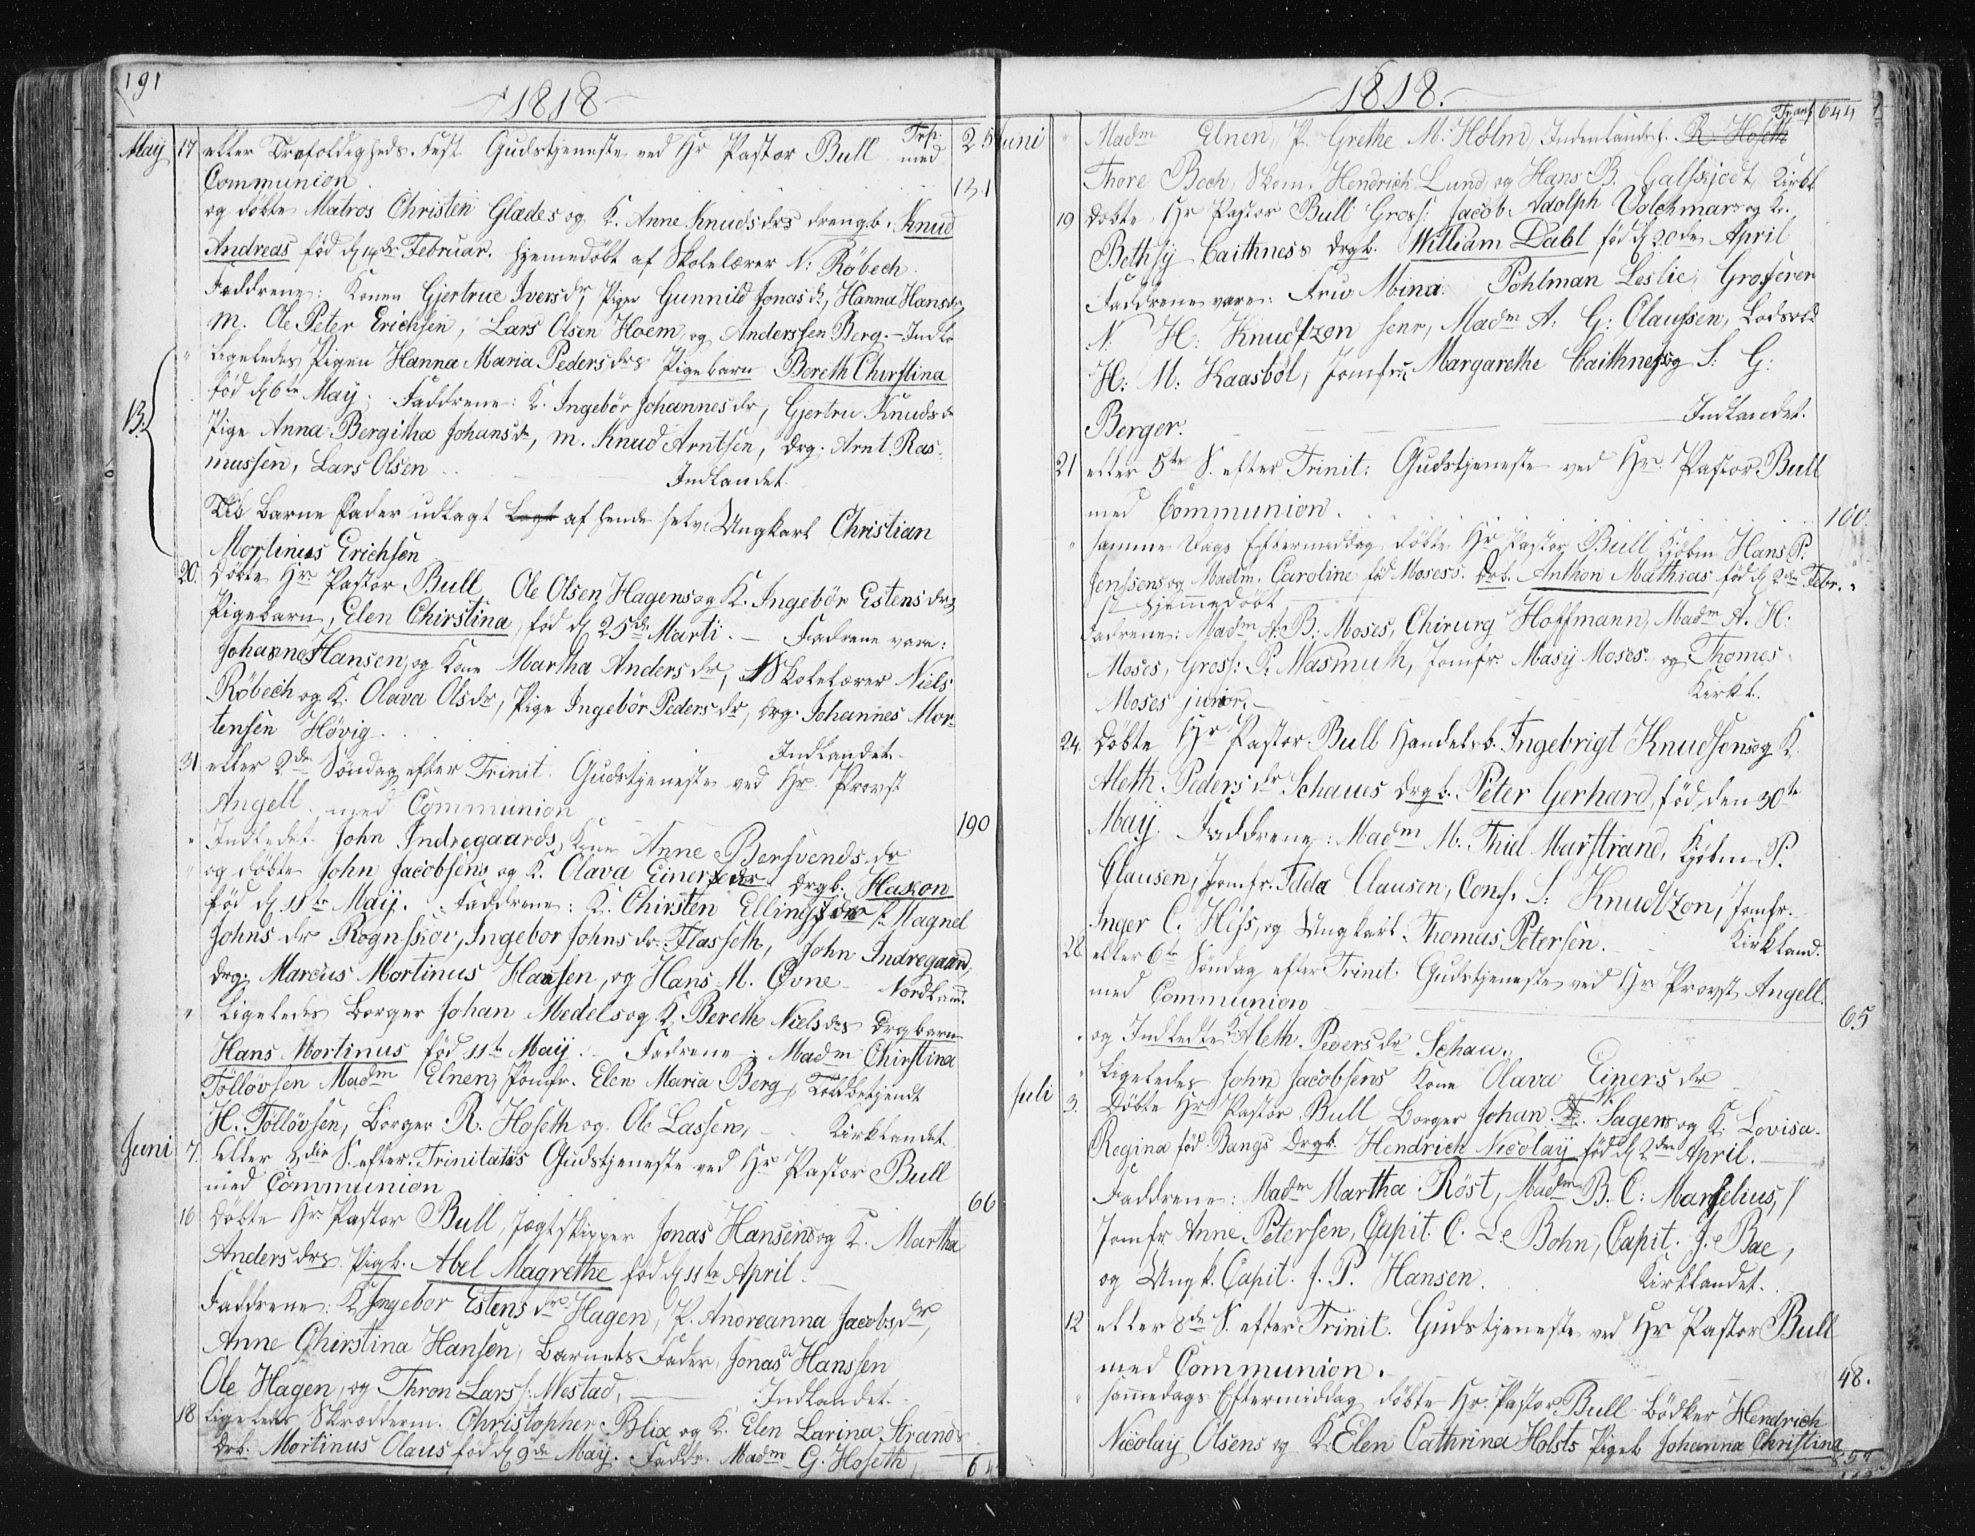 191
1818
May 17 eller Trefoldigheds Fest Gudstjeneste ved Hr Pastor Bull med
Communion 131
og döbte Matros Christen Glædes og K. Anne Knudsdrs drengb. Knud
Andreas föd d 14de Februar. hjemedöbt af Skolelærer N: Röbech.
Faddrene: Konen Gjertrue Iversdr, Piger Gunnild Jonasdr, Hanna Hansdr,
M. Ole Peter Erichsen, Lars Olsen Hoem, og Anderssen Berg. Indl
" Ligeledes Pigen Hanna Maria Pedersdrs Pigebarn Bereth Chirstina
föd d 6te May. Faddrene: K. Ingebör Johannesdr, Gjertru Knudsdr
13. Pige Anna Bergitha Johansdr, M. Knud Arntsen, drg. Arnt Ras-
mussen, Lars Olsen Indlandet.
Til Barne Fader udlagt af hende selv: Ungkarl Christian
Mortinus Erichsen
20. Döbte Hr Pastor Bull Ole Olsen Hagens og K. Ingebör Estensdrs
Pigebarn, Elen Chirstina, föd d 25de Marti. Fadrene vare:
Johannes Hansen, og Kone Martha Andersdr, Skolelærer Niels
Röbech og K. Olava Olsdr, Pige Ingebör Pedersdr, drg. Johannes Mor-
tensen Hövig. Indlandet.
31 eller 2den Söndag efter Trinit. Gudstjeneste ved Hr. Provst
Angell med Communion 190
" Indledet John Indregaards, Kone Anne Bersvendsdr
" og döbte John Jacobsens og K. Olava Einersdr drgb. Haxon
föd d 18te May. Faddrene: K. Chirsten Ellingsdr P. Magnel
Johnsdr Rognssiov, Ingebor Johnsdr Flasseth, John Indregaard,
drg. Marcus Mortinus Hansen, og Hans M. Övne Nordland.
" Ligeledes Borger Johan Medels og K. Bereth Nielsdrs drgbarn
Hans Mortinus föd 11te May. Fadrene: Madm Chirstina
Töllövsen Madm Elnen, Jomfr. Elen Maria Berg, Toldbetjendt
H. Töllövsen, Borger R. Hoseth og Ole Lassen, Kirklandet
Juni 7. eller 3die S. efter Trinitatis Gudstjeneste ved Hr Pastor Bull
med Communion 66
16 Döbte Hr Pastor Bull, Jægtskipper Jonas Hansens og K. Martha
Andersdrs Pigb. Abel Magrethe föd d 11te April.
Faddrene: K. Ingebor Estensdr Hagen, P. Andreanna Jacobsdr,
Anne Chirstina Hansen, Barnets Fader Jonas Hanssen
Ole Hagen, og Thron Larss. Nestad, Indlandet.
18 Ligeledes Skrædderm. Christopher Blix og K. Elen Larina Strands
Drb. Mortinus Olaus föd d 9de May. Faddr. Madm G. Hoseth,
1818.
Transp 644
Juni " Madm Elnen, P. Grethe M. Holm, Indenlandsk. R. Hoseth
Thore Boch, Skom. Hendrich Lund, og Hans B. Galssjodt, Kirkl
19 döbte Hr Pastor Bull Gross: Jacob Adolph Volchmars og K.
Bethsy Caithness drgb. William Dahl föd d 20de April
Faddrene vare: Frue Mina Pohlman Leslie, Grosserer
N. H: Knudtzon senr, Madm A: G: Claussen, Lodsold
H: M: Kaasböl, Jomfru Margarethe Caithness og S: G:
Berger. Indlandet.
21 eller 5te S. efter Trinit: Gudstjeneste ved Hr. Pastor Bull
med Communion. 100.
" samme Dags Eftermiddag döbte Hr Pastor Bull Kjöbm Hans P.
Jenssens og Madm. Caroline föd Moses's. Drb. Anthon Mathias föd d 2de Febr.
hjemmedöbt
Fadrene: Madm A: B: Moses, Chirurg Hoffmann, Madm A. H:
Moses, Gross: P. Wasmuth, Jomfr. Masy Moses og Thomes
Moses junior. Kirkl.
24. döbte Hr Pastor Bull Handelsb. Ingebrigt Knudsens og K.
Aleth Pedersdr Schaues drgb. Peter Gerhard, föd den 30te
May. Faddrene: Madm M. Thiel Marstrand, Kjöbm P.
Clausen, Jomfr. Edda Clausen, Cons. S: Knudtzon, Jomfr.
Inger C. Hiss, og Ungkarl Thomas Petersen. Kirkland.
28 eller 6te Söndag efter Trinit. Gudstjeneste ved Hr Provst Angell.
med Communion 65
" og Indledte K. Aleth Pedersdr Schau.
" Ligeledes John Jacobsens Kone Olava Einersdr
Juli 3. Döbte Hr Pastor Bull Borger Johan Sagens og K. Lovisa
Regina föd Bangs drgb. Hendrich Nicolay föd d 2den April.
Faddrene: Madm Martha Röst, Madm B. C: Marselius,
Jomfr Anne Petersen, Capit. C. Le Bohn, Capit. J. Bae,
og Ungk. Capit. J. P. Hansen. Kirklandet.
12 eller 8de S. efter Trinit. Gudstjeneste ved Hr Pastor Bull
med Communion. 48.
" sammedags Eftermiddag döbte Hr. Pastor Bull Bödker Hendrich
Nicolay Olsens og K: Elen Cathrina Holsts Pigeb Johanna Christina
857